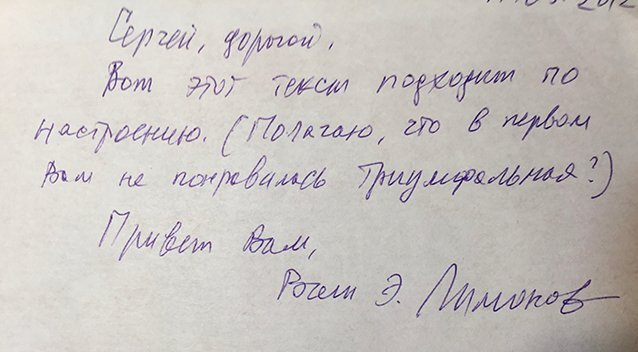 2012
Сергей, дорогой,
Вот этот текст подходит по
настроению. (Полагаю, что в первом
Вам не понравилась Триумфальная?)
Привет Вам,
Э. Лимонов